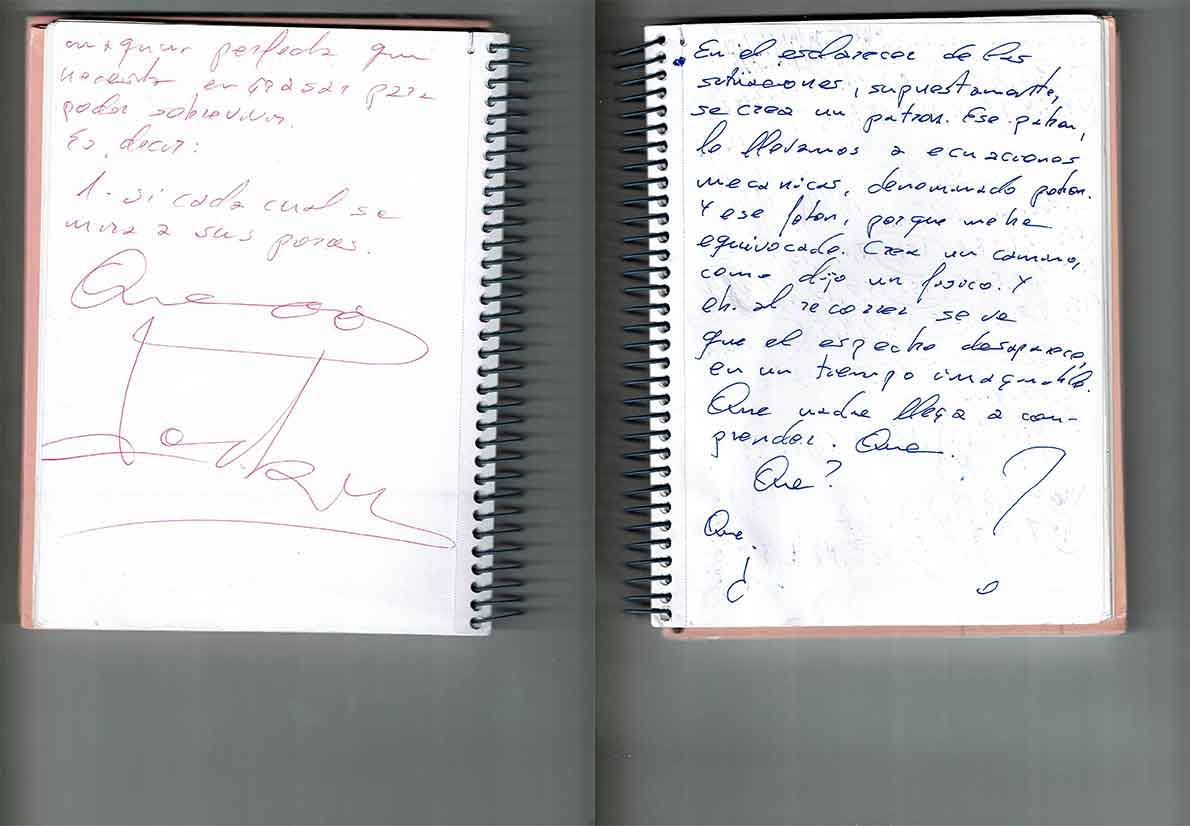 maquina perfecta que
necesita engrasar para
poder sobrevivir.
Es decir:
1- si cada cual se
mira a sus poros.
Que
En el esclarecer de las
situaciones, supuestamente,
se crea un patron. Ese patron,
lo llevamos a ecuaciones
mecanicas, denominado patron.
Y ese foton, porque me he
equivocado. Crea un camino,
como dijo un fisico. Y
eh. al recorrer se ve
que el espectro desaparece,
en un tiempo imaginable.
Que nadie llega a com-
prender. Que.
Que?
Que.
¿ ?